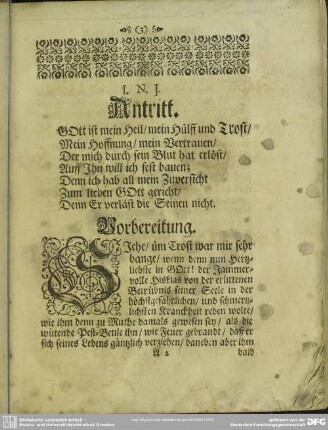 (3)
I. N. J.
Antritt.
GOtt ist mein Heil/ mein Hülff und Trost/
Mein Hoffnung/ mein Vertrauen/
Der mich durch sein Blut hat erlöst/
Auff Ihn will ich fest bauen;
Denn ich hab all mein Zuversicht
Zum lieben GOtt gericht/
Denn Er verläst die Seinen nicht.
Vorbereitung.
SIehe/ üm Trost war mir sehr
bange/ wenn denn nun Hertz-
liebste in GOtt! der Jammer-
volle Hiskias von der erlittenen
Betrübnis seiner Seele in der
höchstgefährlichen/ und schmertz-
lichsten Kranckheit reden wolte/
wie ihm denn zu Muthe damals gewesen sey/ als die
wütende Pest-Beule ihn/ wie Feuer gebrandt/ daß er
sich seines Lebens gäntzlich verziehen/ daneben aber ihm
A 2 bald
Sächsische Landesbibliothek
Staats- und Universitätsbibliothek Dresden
gefördert von der
Deutschen Forschungsgemeinschaft
DFG